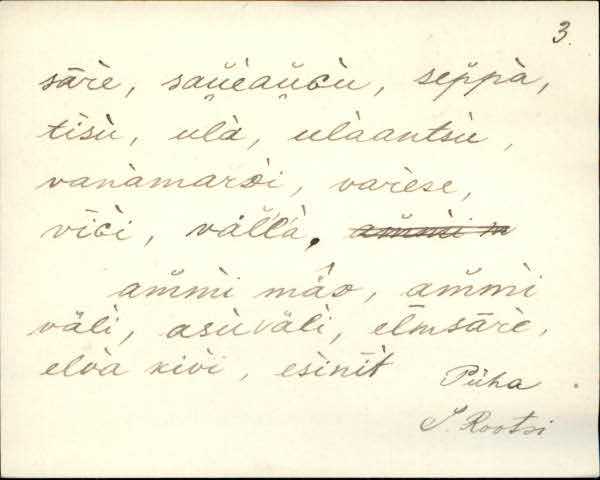 3.
sārè, saŭèaŭ̀ɢù, sep̆pà,
tīsù, ulà, ulàantsù,
vanàmarᴅi, varèse,
vīɢi, văl̆l̆à, am̆mi m
am̆mì mǟᴅ, am̆mì
välì, asùvälì, ēlmsārè,
elvà kivi, esìnīt
Püha
S. Rootsi